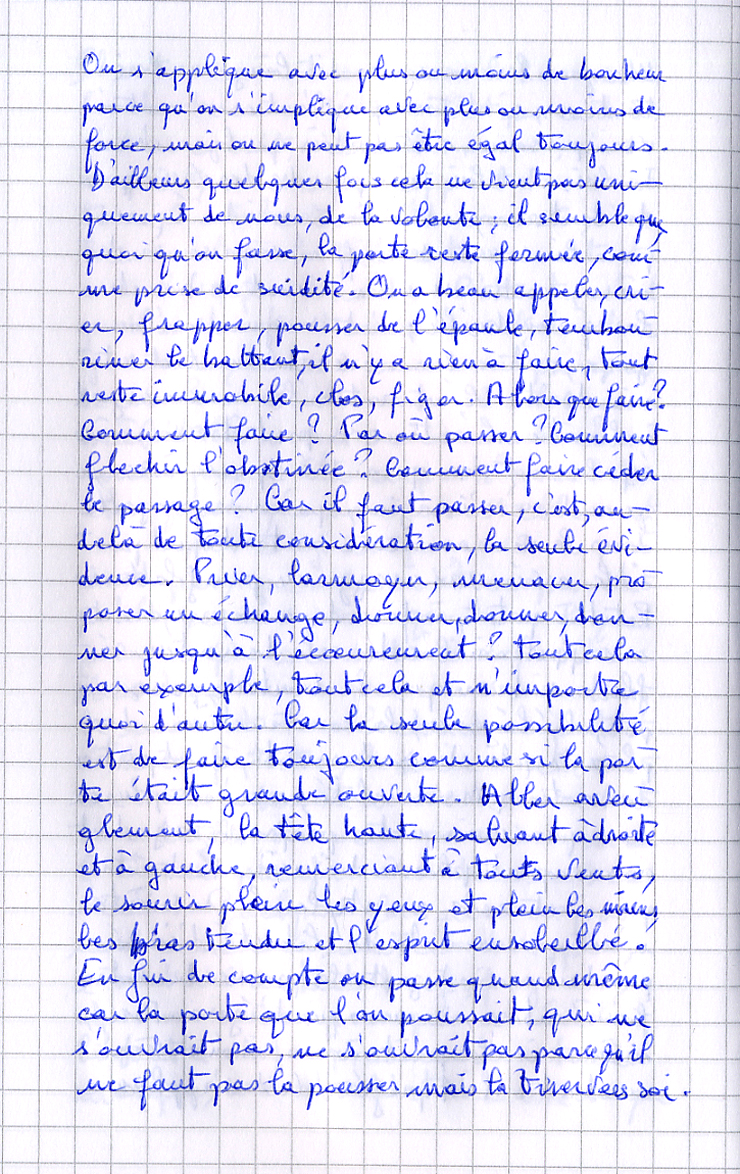 On s'applique avec plus ou moins de bonheur
parce qu'on s'implique avec plus ou moins de
force, mais on ne peut pas être égal toujours.
D'ailleurs quelques fois cela ne vient pas uni-
quement de nous, de la volonté ; il semble que
quoi qu'on fasse, la porte reste fermée, com-
me prise de surdité. On a beau appeler, cri-
er, frapper, pousser de l'épaule, tembou-
riner le battant, il n'y a rien à faire, tout
reste immobile, clos, figer. Alors que faire ?
Comment faire ? Par où passer ? Comment
flechir l'obstinée ? Comment faire céder
le passage ? Car il faut passer, c'est, au-
delà de toute considération, la seule évi-
dence. Prier, larmoyer, menacer, pro-
poser un échange, donner, donner, don-
ner jusqu'à l'écoeurement ? tout cela
par exemple, tout cela et n'importe
quoi d'autre. Car la seule possibilité
est de faire toujours comme si la por-
te était grande ouverte. Aller aveu-
glement, la tête haute, saluant à droite
et à gauche, remerciant à touts vents,
le sourir plein les yeux et plein les mains,
les bras tendu et l'esprit ensoleillé.
En fin de compte on passe quand même
car la porte que l'on poussait, qui ne
s'ouvrait pas, ne s'ouvrait pas parce qu'il
ne faut pas la pousser mais la tirer vers soi.